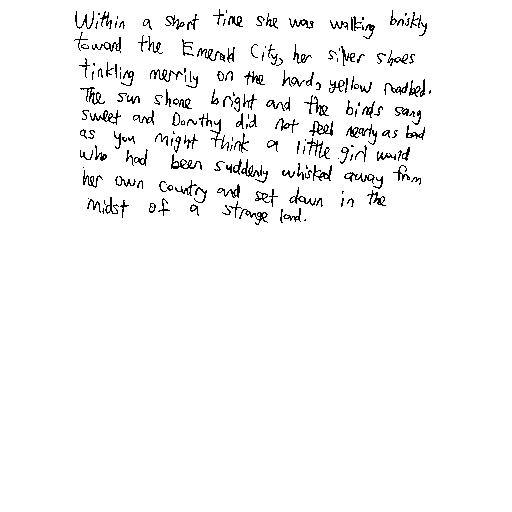 Within a short time she was walking briskly
toward the Emerald City, her silver shoes
tinkling merrily on the hard, yellow roadbed.
The sun shone bright and the birds sang
sweet and Dorothy did not feel nearly as bad
as you might think a little girl would
who had been suddenly whisked away from
her own country and set down in the
midst of a strange land.